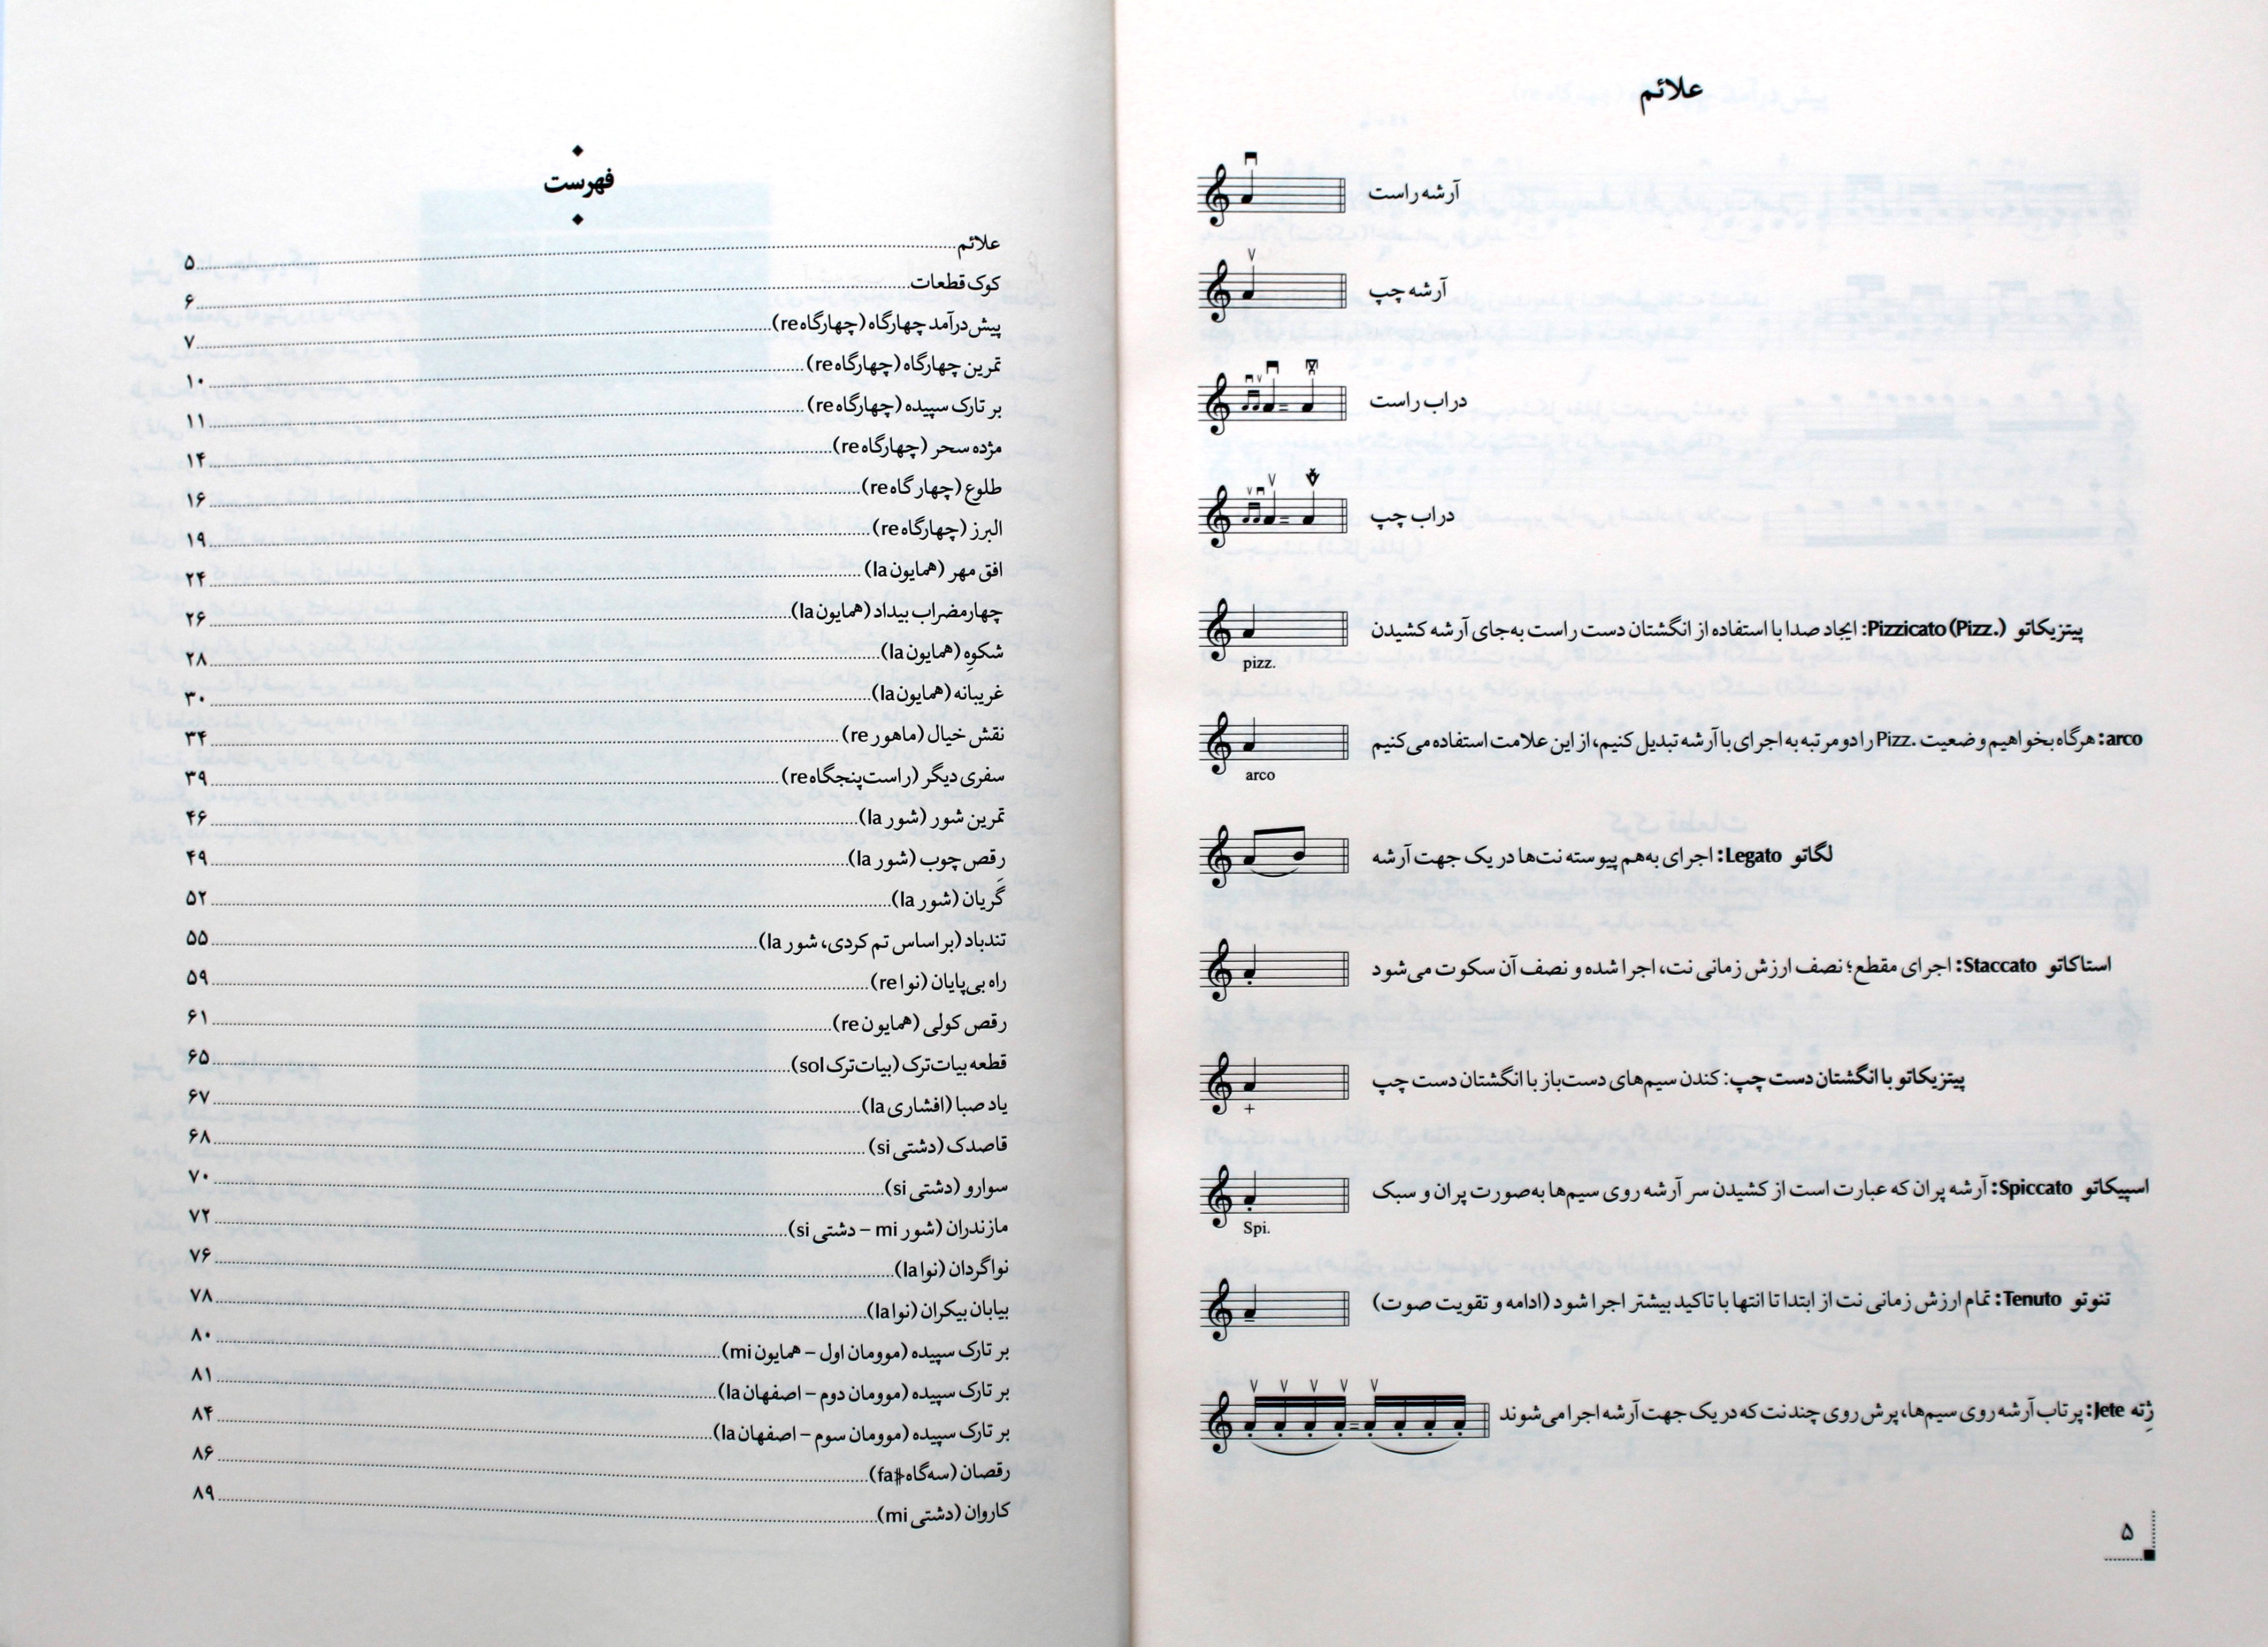 علائم
آرشه راست
آرشه چپ
دراب راست
دراب چپ
پیتزیکاتو Pizzicato (Pizz.): ایجاد صدا با استفاده از انگشتان دست راست به‌جای آرشه کشیدن
pizz.
arco: هرگاه بخواهیم وضعیت Pizz. را دو مرتبه به اجرای با آرشه تبدیل کنیم، از این علامت استفاده می‌کنیم
arco
لگاتو Legato: اجرای به‌هم پیوسته نت‌ها در یک جهت آرشه
استاکاتو Staccato: اجرای مقطع؛ نصف ارزش زمانی نت، اجرا شده و نصف آن سکوت می‌شود
پیتزیکاتو با انگشتان دست چپ: کندن سیم‌های دست‌باز با انگشتان دست چپ
+
اسپیکاتو Spiccato: آرشه پران که عبارت است از کشیدن سر آرشه روی سیم‌ها به‌صورت پران و سبک
Spi.
تنوتو Tenuto: تمام ارزش زمانی نت از ابتدا تا انتها با تاکید بیشتر اجرا شود (ادامه و تقویت صوت)
ژِته Jete: پرتاب آرشه روی سیم‌ها، پرش روی چند نت که در یک جهت آرشه اجرا می‌شوند
۵
فهرست
علائم ۵
کوک قطعات ۶
پیش‌درآمد چهارگاه (چهارگاه re) ۷
تمرین چهارگاه (چهارگاه re) ۱۰
بر تارک سپیده (چهارگاه re) ۱۱
مژده سحر (چهارگاه re) ۱۴
طلوع (چهارگاه re) ۱۶
البرز (چهارگاه re) ۱۹
افق مهر (همایون la) ۲۴
چهارمضراب بیداد (همایون la) ۲۶
شکوه (همایون la) ۲۸
غریبانه (همایون la) ۳۰
نقش خیال (ماهور re) ۳۴
سفری دیگر (راست‌پنجگاه re) ۳۹
تمرین شور (شور la) ۴۶
رقص چوب (شور la) ۴۹
گَریان (شور la) ۵۲
تندباد (براساس تم کردی، شور la) ۵۵
راه بی‌پایان (نوا re) ۵۹
رقص کولی (همایون re) ۶۱
قطعه بیات‌ترک (بیات‌ترک sol) ۶۵
یاد صبا (افشاری la) ۶۷
قاصدک (دشتی si) ۶۸
سوارو (دشتی si) ۷۰
مازندران (شور mi - دشتی si) ۷۲
نواگردان (نوا la) ۷۶
بیابان بیکران (نوا la) ۷۸
بر تارک سپیده (موومان اول - همایون mi) ۸۰
بر تارک سپیده (موومان دوم - اصفهان la) ۸۱
بر تارک سپیده (موومان سوم - اصفهان la) ۸۴
رقصان (سه‌گاه fa) ۸۶
کاروان (دشتی mi) ۸۹